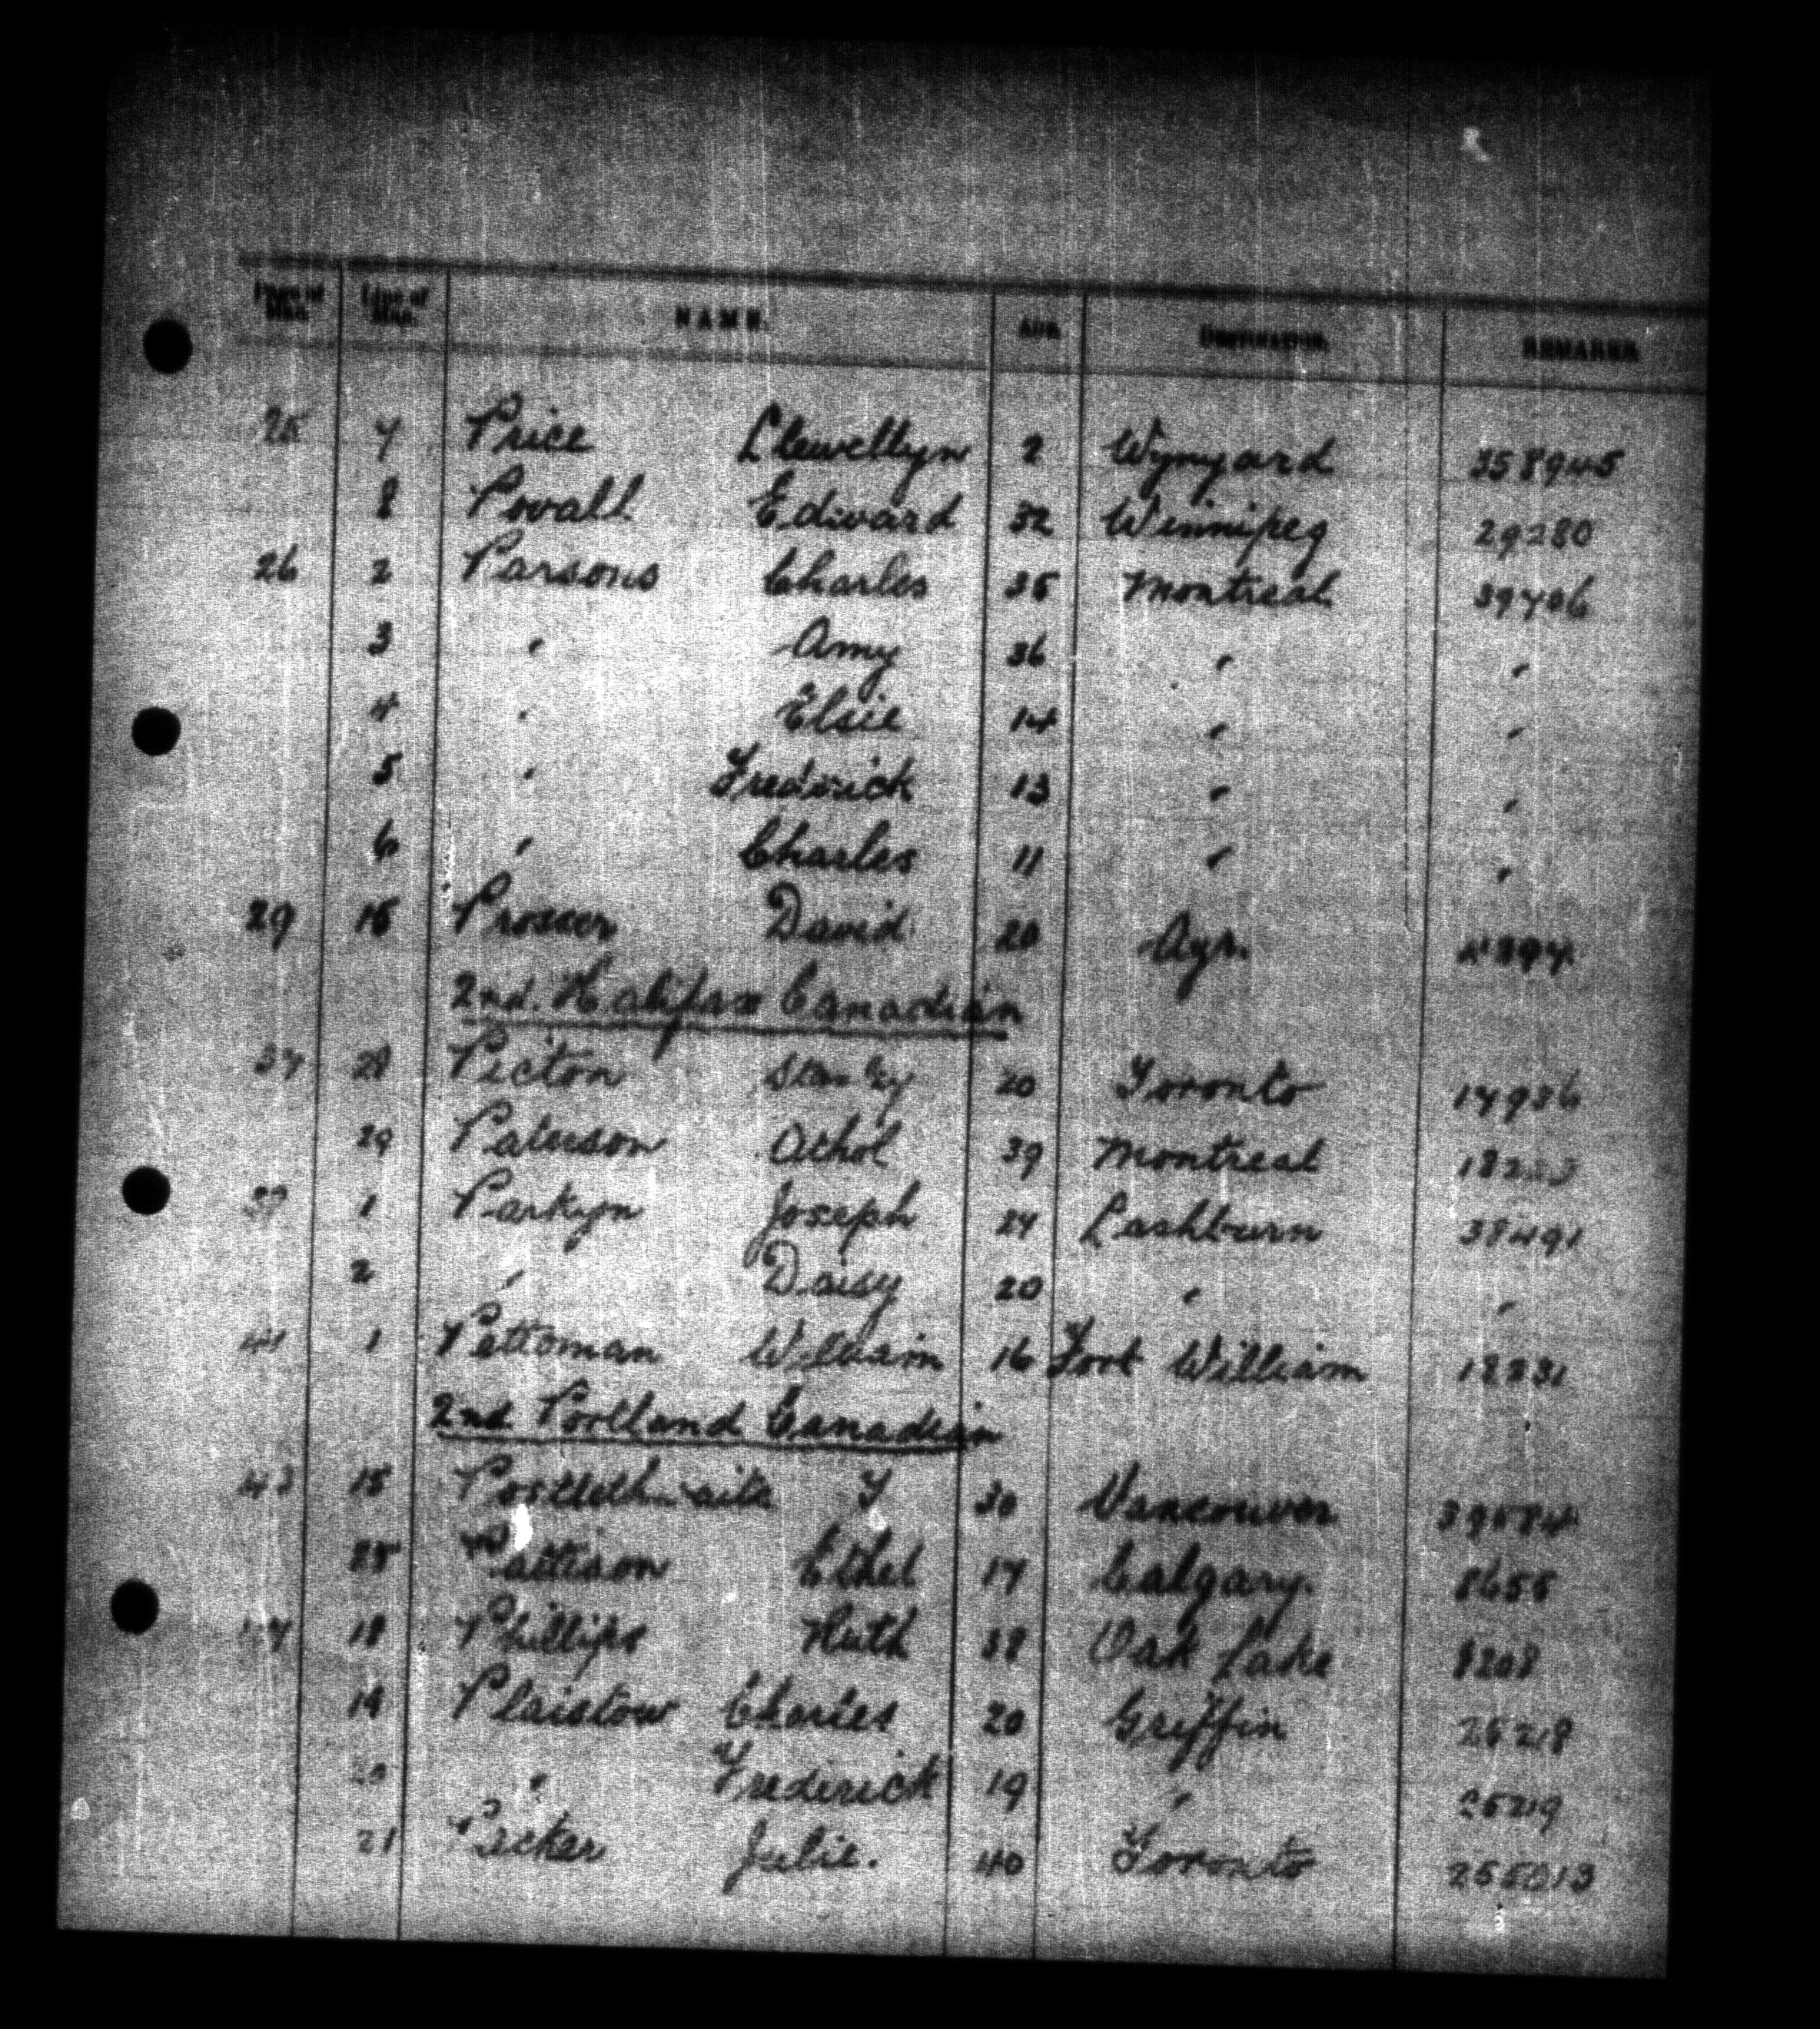 Page of Man. Line of Man. NAME. AGE. DESTINATION. REMARKS.
25 7 Price Llewellyn 2 Wynyard 358945
8 Povall Edward 32 Winnipeg 29280
26 2 Parsons Charles 35 Montreal 39706
3 " Amy 36 " "
4 " Elsie 14 " "
5 " Frederick 13 " "
6 " Charles 11 " "
29 15 Prosser David 20 Ayr.
2nd. Halifax Canadian
37 28 Picton Stanley 20 Toronto 14936
29 Paterson Athol 39 Montreal
1 Parkyn Joseph 24 Lashburn 38491
2 " Daisy 20 " "
41 1 Pettoman William 16 Fort William 18231
2nd Portland Canadian
43 15 Postlethwaite Y 30 Vancouver
25 Pattison Ethel 17 Calgary. 8655
18 Phillips Ruth 38 Oak Lake 8208
19 Plaistow Charles 20 Griffin 25218
20 " Frederick 19 " 25219
21 Packer Julie. 40 Toronto